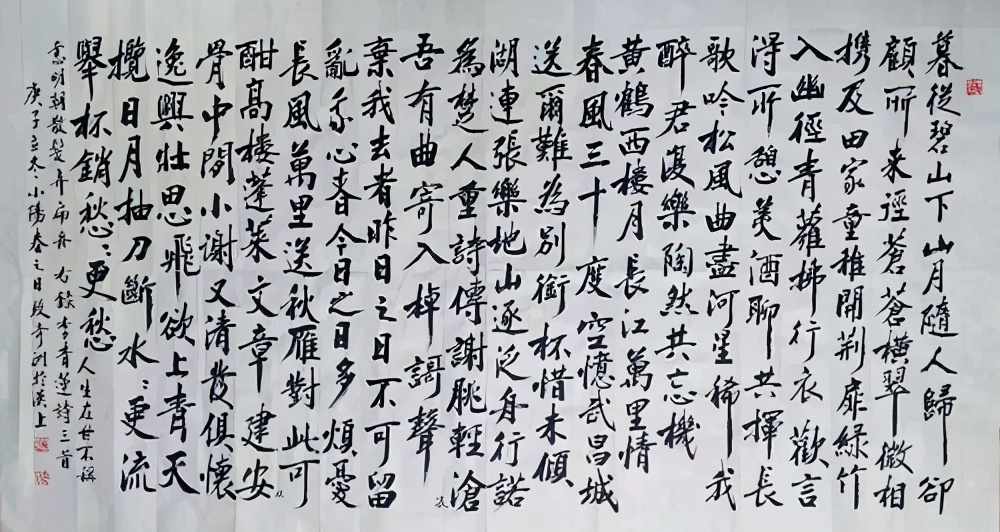 暮從碧山下山月隨人歸卻
顧所来逕蒼蒼橫翠微相
携及田家童稚開荆扉綠竹
入幽徑青蘿拂行衣歡言
得所憩美酒聊共揮長
歌吟松風曲盡河星稀我
醉君復樂陶然共忘機
黄鶴西樓月長江萬里情
春風三十度空憶武昌城
送爾難為別銜杯惜未傾
湖連張樂地山逐泛舟行諾
為楚人重詩傳謝朓輕滄
浪
吾有曲寄入棹謌聲
棄我去者昨日之日不可留
亂我心者今日之日多煩憂
長風萬里送秋雁對此可
以
酣高樓蓬萊文章建安
骨中間小謝又清發俱懷
逸興壯思飛欲上青天
攬日月抽刀斷水〻更流
舉杯銷愁〻更愁人生在世不稱
意明朝散髮弄扁舟 右錄李青蓮詩三首
庚子立冬小陽春之日於漢上